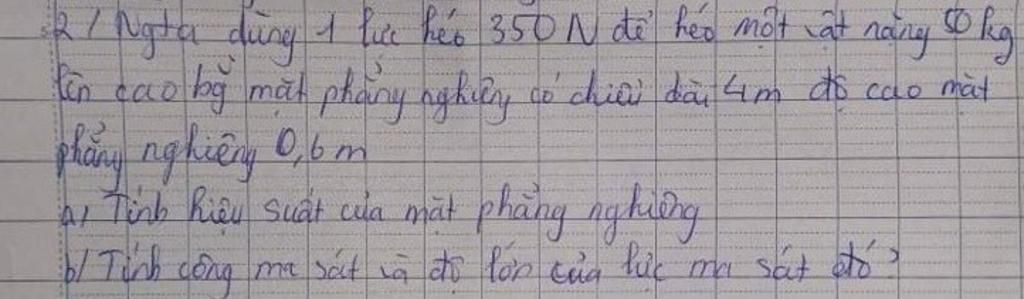 2/ Ngta dùng 1 lực kéo 350N để kéo một vật nặng 50kg
lên cao bg mặt phẳng nghiêng có chiều dài 4m độ cao mặt
phẳng nghiêng 0,6m
a/ Tính hiệu suất của mặt phẳng nghiêng
b/ Tính công ma sát và độ lớn của lực ma sát đó?